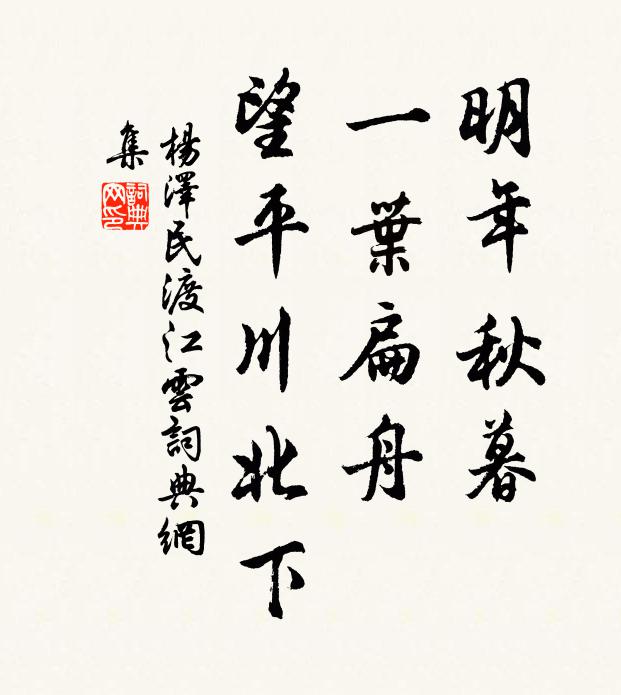 明年秋暮
一葉扁舟
望平川北下
楊澤民渡江雲詞典網
集
詞典
网印